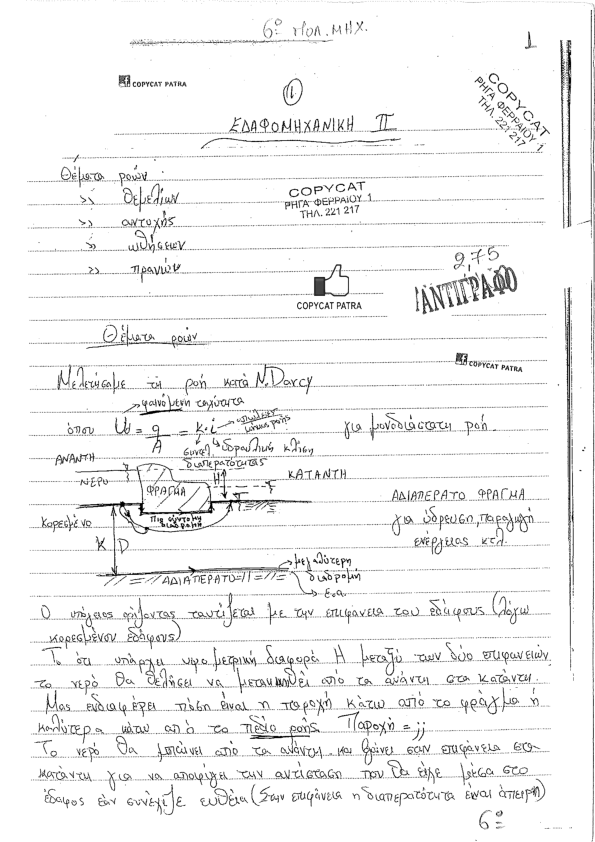 6º ΠΟΛ. ΜΗΧ.
1
COPYCAT PATRA
①
ΕΔΑΦΟΜΗΧΑΝΙΚΗ ΙΙ
COPYCAT
ΡΗΓΑ ΦΕΡΡΑΙΟΥ 1
ΤΗΛ. 221 217
Θέματα ροών
>> θεμελίων
>> αντοχής
>> ωθήσεων
>> πρανών
COPYCAT
ΡΗΓΑ ΦΕΡΡΑΙΟΥ 1
ΤΗΛ. 221 217
COPYCAT PATRA
2,75
ΑΝΤΙΓΡΑΦΟ
Θέματα ροών
COPYCAT PATRA
Μελετήσαμε τη ροή κατά N. Darcy
φαινόμενη ταχύτητα
όπου U = q/A = k·i για μονοδιάστατη ροή.
συντελ. διαπερατότητας
υδραυλική κλίση
ΑΝΑΝΤΗ
ΝΕΡΟ
ΦΡΑΓΜΑ
H
ΚΑΤΑΝΤΗ
ΚΟΡΕΣΜΕΝΟ
Πιο σύντομη διαδρομή
K D
ΑΔΙΑΠΕΡΑΤΟ
μεγαλύτερη
διαδρομή
ΑΔΙΑΠΕΡΑΤΟ ΦΡΑΓΜΑ
για ύδρευση, παραγωγή
ενέργειας κτλ.
Ο υπόγειος ορίζοντας ταυτίζεται με την επιφάνεια του εδάφους (λόγω
κορεσμένου εδάφους)
Το ότι υπάρχει υψομετρική διαφορά H μεταξύ των δύο επιφανειών
το νερό θα θελήσει να μετακινηθεί από τα ανάντη στα κατάντη.
Μας ενδιαφέρει πόση είναι η παροχή κάτω από το φράγμα ή
καλύτερα κάτω από το πεδίο ροής Παροχή = ;;
Το νερό θα μπαίνει από τα ανάντη και βγαίνει στην επιφάνεια στα
κατάντη για να αποφύγει την αντίσταση που θα είχε μέσα στο
έδαφος εάν συνέχιζε ευθεία (Στην επιφάνεια η διαπερατότητα είναι άπειρη)
6º